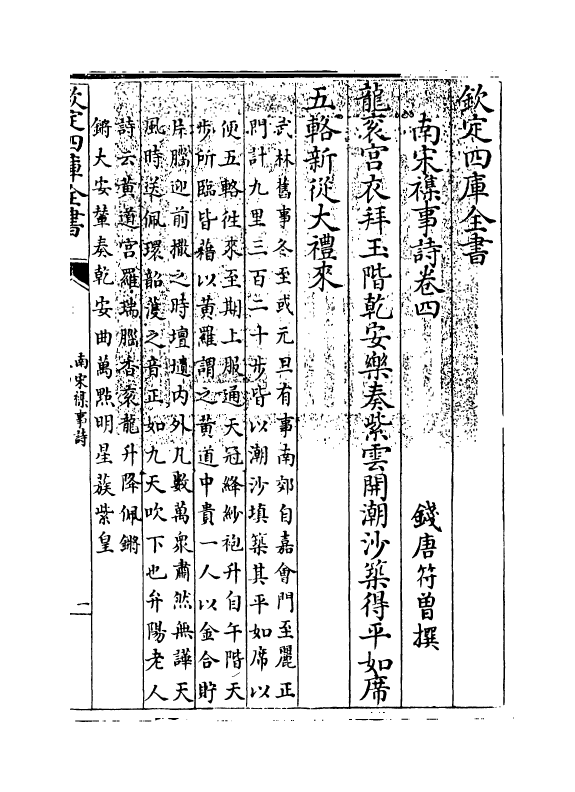 欽定四庫全書
南宋襍事詩卷四
錢唐符曽撰
龍衮宫衣拜玉階乾安樂奏紫雲開潮沙築得平如席
五輅新從大禮來
武林舊事冬至或元旦有事南郊自嘉會門至麗正
門計九里三百二十步皆以潮沙填築其平如席以
便五輅往來至期上服通天冠絳紗袍升自午階天
步所臨皆藉以黄羅謂之黄道中貴一人以金合貯
片腦迎前撒之時壇壝内外凡數萬衆肅然無譁天
風時送佩環韶䕶之音正如九天吹下也弁陽老人
詩云黄道宫羅瑞腦香衮龍升降佩鏘
鏘大安輦奏乾安曲萬㸃明星蔟紫皇
欽定四庫全書
南宋襍事詩
一